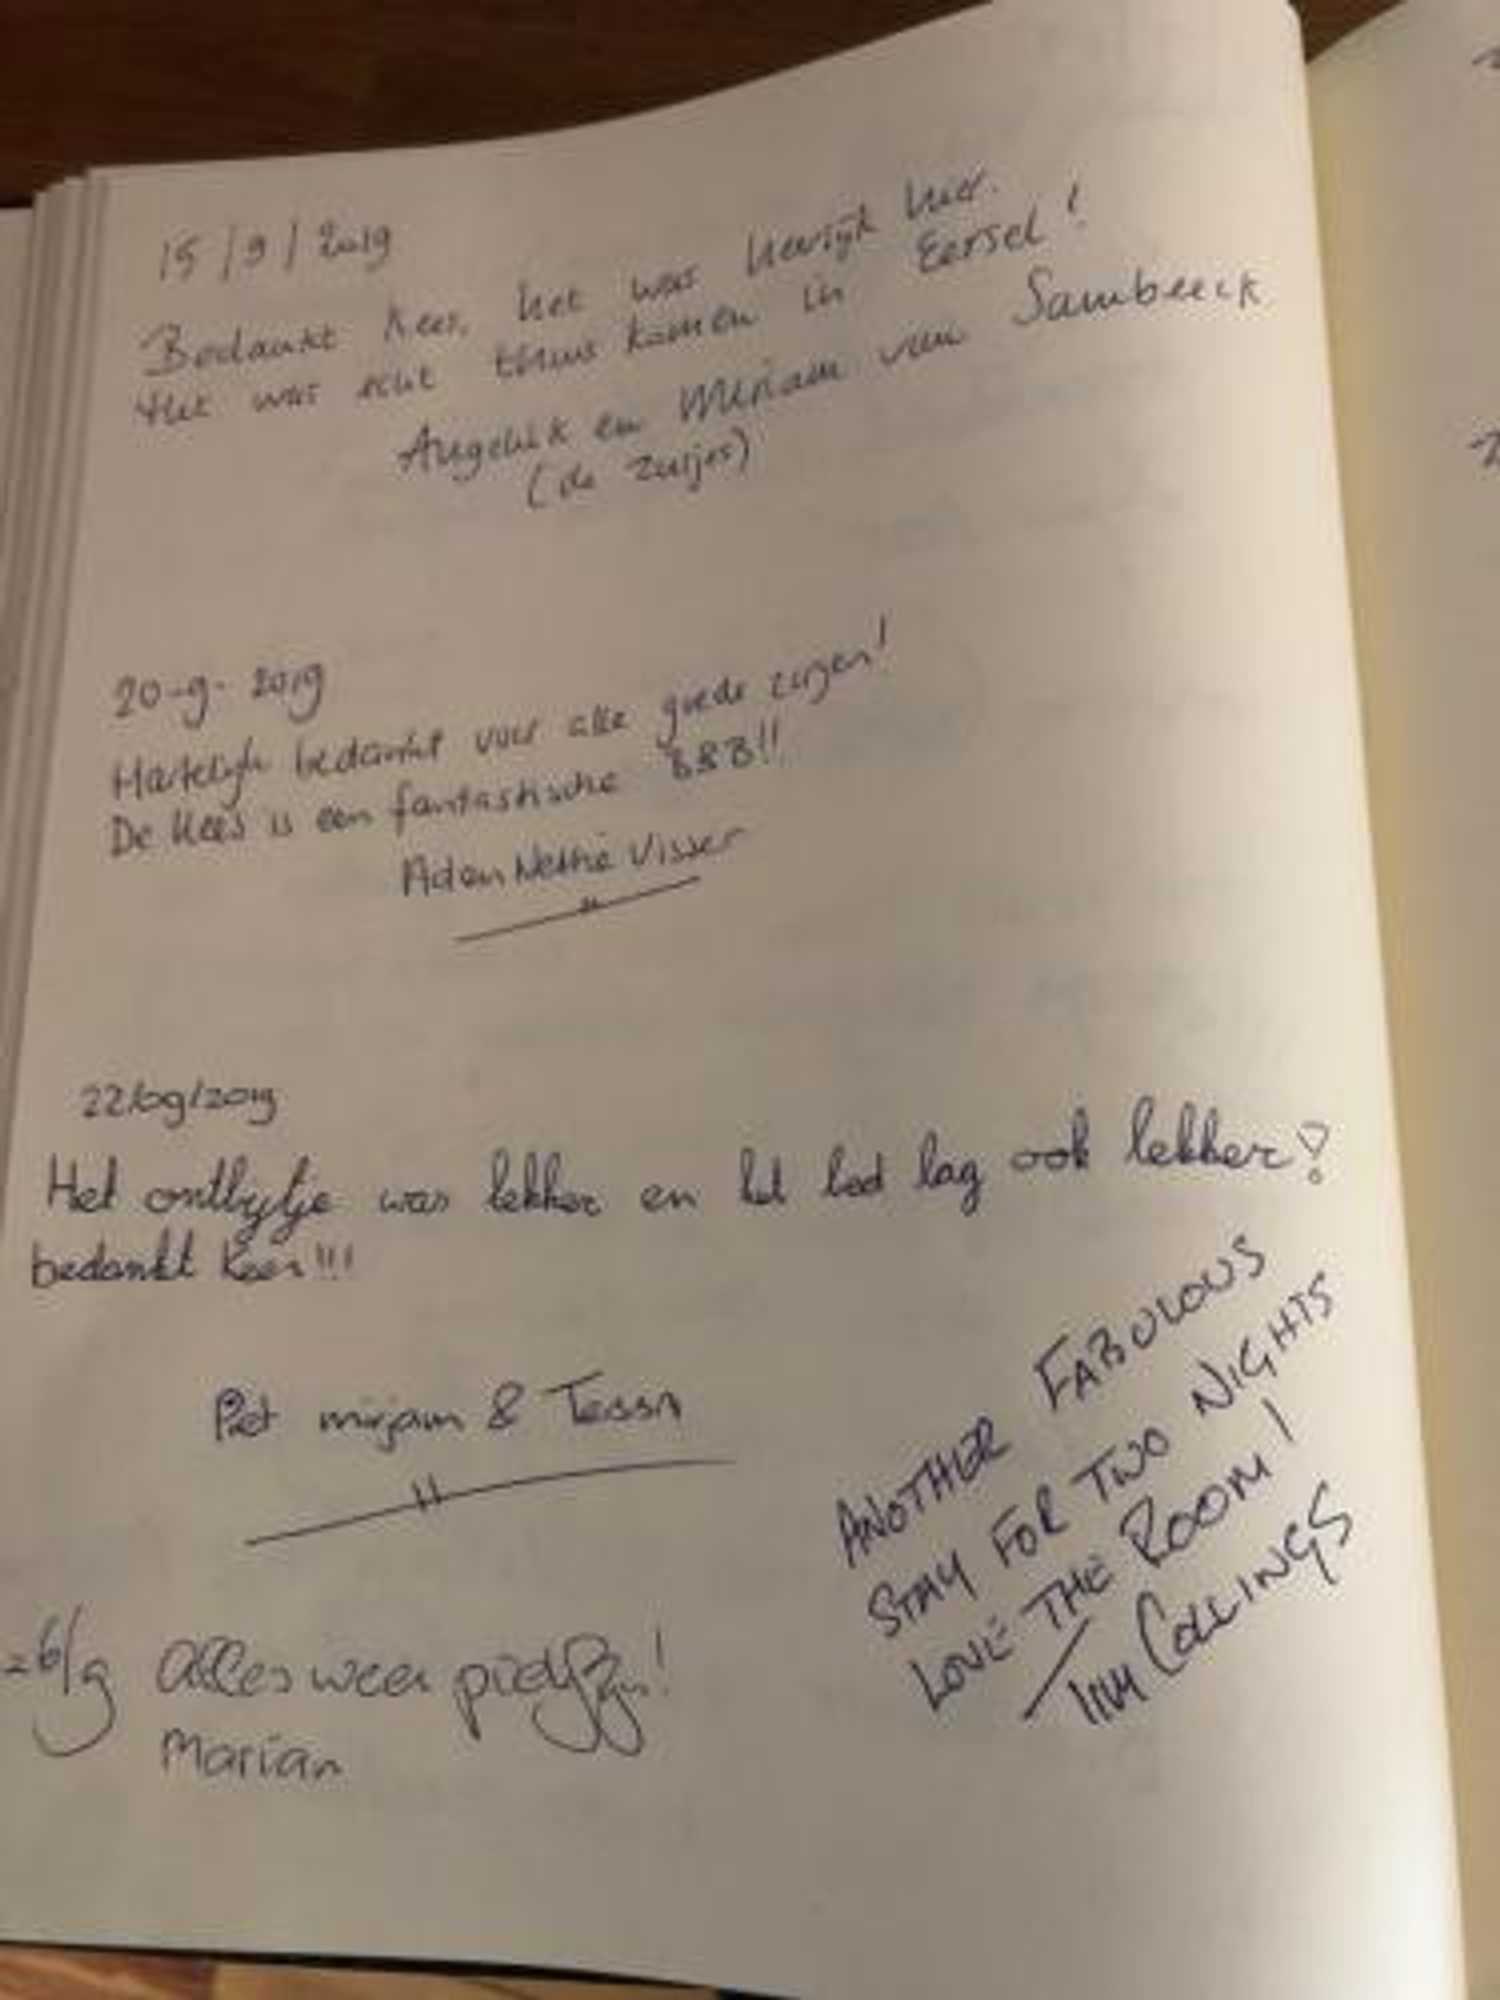 15/9/2019
Bedankt Kees, het was heerlijk hier.
Het was echt thuis komen in Eersel!
Angelik en Miriam van Sambeeck
(de zusjes)
20-9-2019
Hartelijk bedankt voor alle goede zorgen!
De Kees is een fantastische B&B!!
Ad en Nettie Visser
22/09/2019
Het ontbijtje was lekker en het bed lag ook lekker!
bedankt Kees!!!
Piet mirjam & Tessa
ANOTHER FABULOUS
STAY FOR TWO NIGHTS
LOVE THE ROOM!
TIM COLLINGS
26/9 Alles weer piekfijn!
Marian